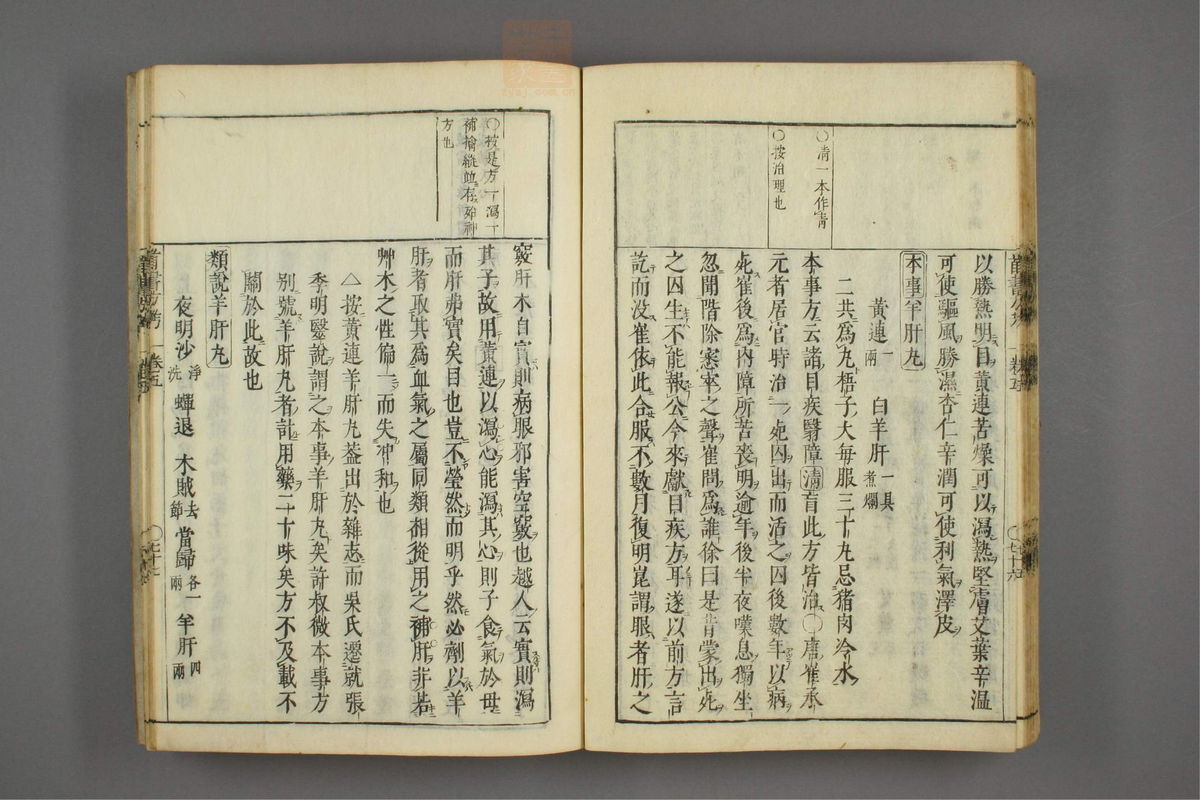 ○清一本作青
○按治理也
以勝熱明目黃連苦燥可以瀉熱堅膚艾葉辛溫
可使驅風勝濕杏仁辛潤可使利氣澤皮
本事羊肝丸
黃連一兩 白羊肝一具煮爛
二共爲丸梧子大每服三十丸忌豬肉冷水
本事方云諸目疾翳障清盲此方皆治○唐崔承
元者居官時治一死囚出而活之囚後數年以病
死崔後爲內障所苦喪明逾年後半夜嘆息獨坐
忽聞階除窸窣之聲崔問爲誰徐曰是昔蒙出死
之囚生不能報公今來獻目疾方耳遂以前方言
訖而没崔依此合服不數月復明崑謂眼者肝之
○按是方一瀉一
補擒縱並在殆神
方也
竅肝木自實則病服邪害空竅也越人云實則瀉
其子故用黃連以瀉心能瀉其心則子食氣於母
而肝弗實矣目也豈不瑩然而明乎然必劑以羊
肝者取其爲血氣之屬同類相從用之補肝非若
艸木之性偏一而失沖和也
△按黃連羊肝丸蓋出於雜志而吳氏遷就張
季明醫說謂之本事羊肝丸矣許叔微本事方
別號羊肝丸者計用藥二十味矣方不及載不
關於此故也
類說羊肝丸
夜明沙淨洗 蟬退 木賊去節 當歸各一兩 羊肝四兩
醫書方考 卷五 ○七十六
醫書方考 卷五 ○七十七